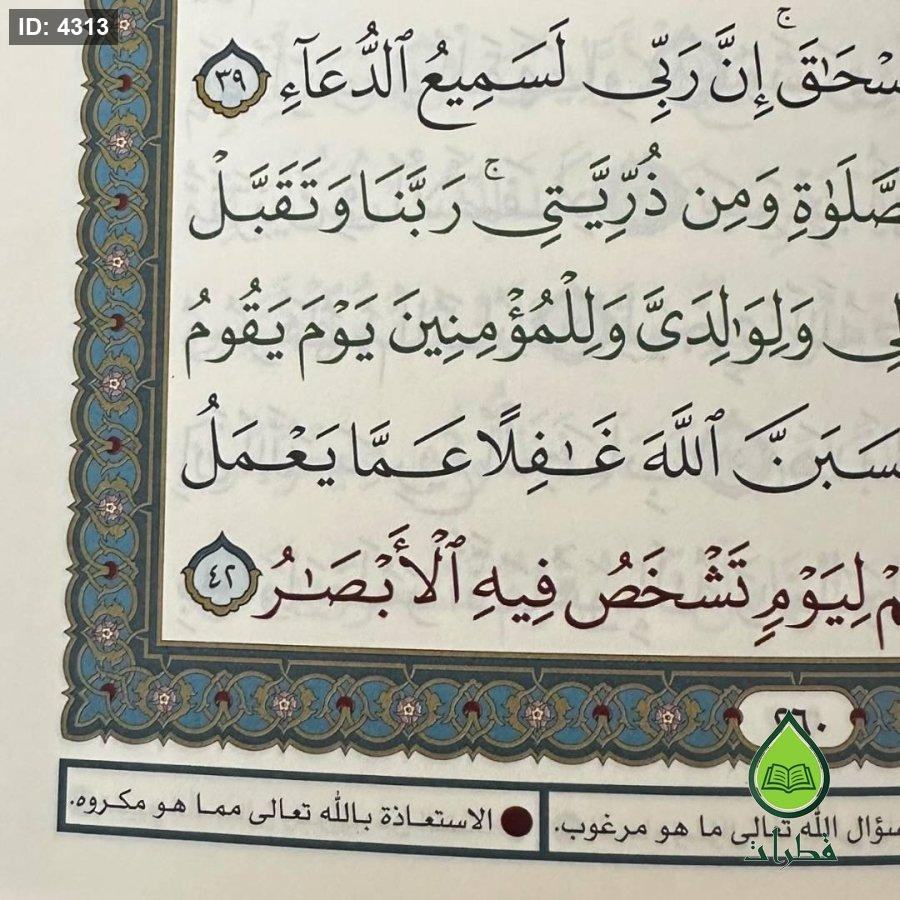 ID: 4313
سْحَٰقَۚ إِنَّ رَبِّي لَسَمِيعُ ٱلدُّعَآءِ ٣٩
صَّلَوٰةِ وَمِن ذُرِّيَّتِيۚ رَبَّنَا وَتَقَبَّلْ
لِي وَلِوَٰلِدَيَّ وَلِلْمُؤْمِنِينَ يَوْمَ يَقُومُ
سَبَنَّ ٱللَّهَ غَٰفِلًا عَمَّا يَعْمَلُ
مْ لِيَوْمٍ تَشْخَصُ فِيهِ ٱلْأَبْصَٰرُ ٤٢
٢٦٠
سؤال الله تعالى ما هو مرغوب.
الاستعاذة بالله تعالى مما هو مكروه.
قطرات